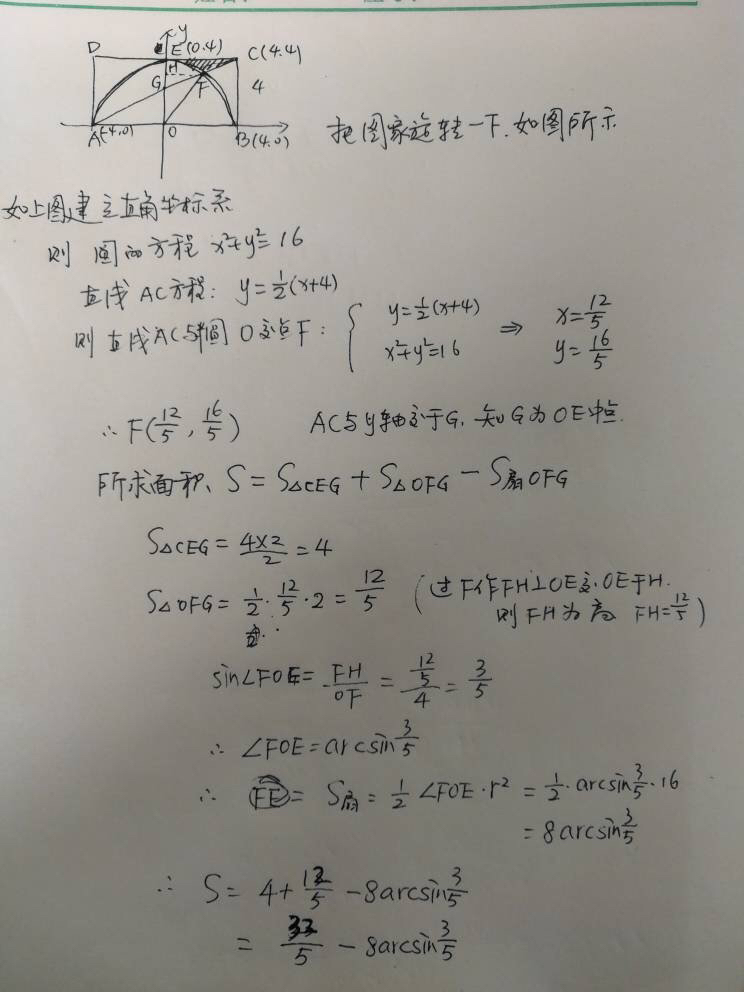 y
D E(0.4) C(4.4)
H
G F 4
A(-4,0) O B(4.0)
把图象旋转一下.如图所示
如上图建立直角坐标系
则 圆的方程 x²+y²=16
直线AC方程: y=½(x+4)
则直线AC与半圆O交点F: { y=½(x+4) x²+y²=16 ⇒ x=12/5 y=16/5
∴ F(12/5, 16/5) AC与y轴交于G, 知G为OE中点.
所求面积、S = S△CEG + S△OFG − S扇OFG
S△CEG = 4×2/2 = 4
S△OFG = 1/2 · 12/5 · 2 = 12/5 (过F作FH⊥OE交OE于H.
则FH为高 FH=12/5)
sin∠FOE = FH/OF = (12/5)/4 = 3/5
∴ ∠FOE = arcsin 3/5
∴ FE = S扇 = 1/2 ∠FOE · r² = 1/2 · arcsin 3/5 · 16
= 8arcsin 3/5
∴ S = 4 + 12/5 − 8arcsin 3/5
= 32/5 − 8arcsin 3/5